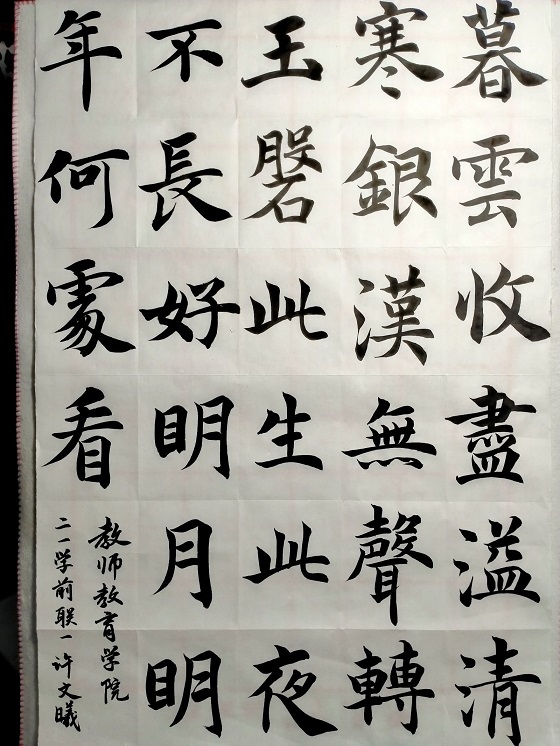 暮雲收盡溢清
寒銀漢無聲轉
玉磐此生此夜
不長好明月明
年何處看
教师教育学院
二一学前联一许文曦